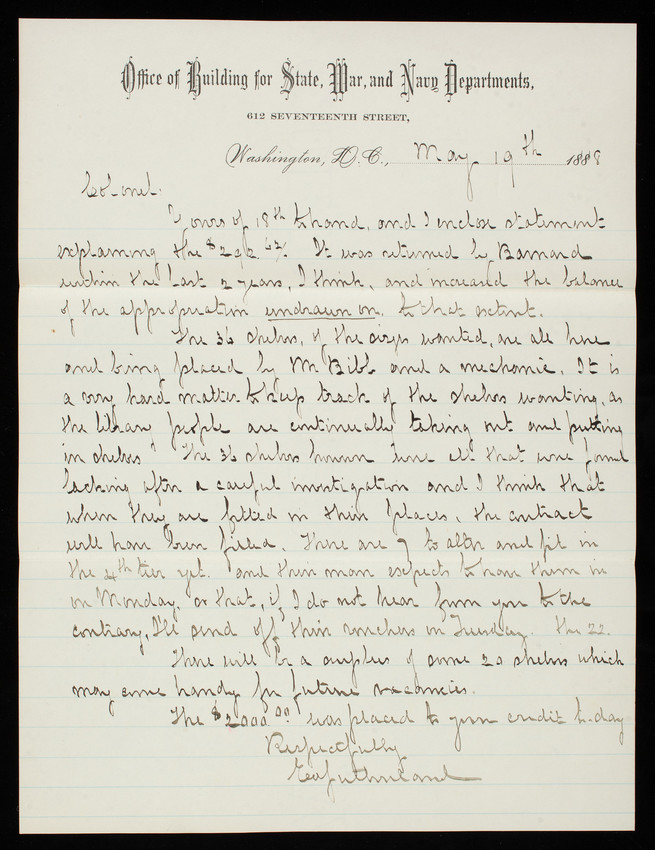 Office of Building for State, War, and Navy Departments,
612 SEVENTEENTH STREET,
Washington, D.C., May 19th 1888
Colonel.
Yours of 18th to hand, and I enclose statement
explaining the $ It was returned by Barnard
within the last 2 years, I think, and increased the balance
of the appropriation undrawn on, to that extent.
The 36 shelves, of the sizes wanted, are all here
and being placed by Mr Bibb and a mechanic. It is
a very hard matter to keep track of the shelves wanting, as
the library people are continually taking out and putting
in shelves. The 36 shelves however were all that were found
lacking after a careful investigation and I think that
when they are fitted in their places, the contract
will have been filled. There are 9 to alter and fit in
the 4th tier yet. and their man expects to have them in
on Monday, so that, if I do not hear from you to the
contrary, I'll send off their vouchers on Tuesday. the 22.
There will be a surplus of some 20 shelves which
may come handy for future vacancies.
The $2000.00 was placed to your credit to-day
Respectfully